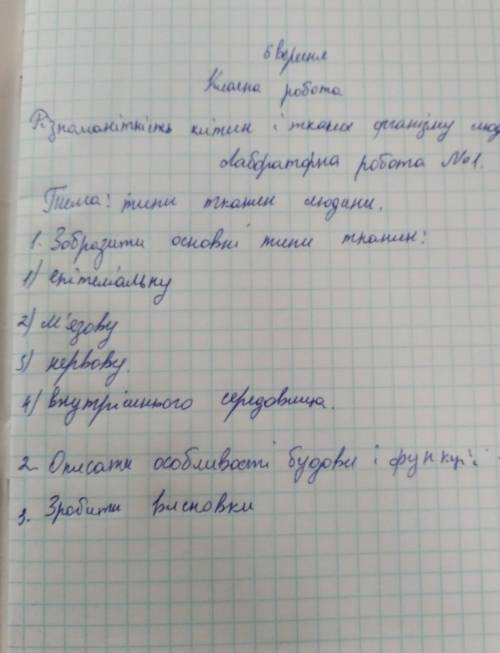 6 вересня
Класна робота
Різноманітність клітин і тканин організму люд
Лабораторна робота №1.
Тема: типи тканин людини.
1. Зобразити основні типи тканин:
1) епітеліальну
2) м'язову
3) нервову.
4) внутрішнього середовища.
2. Описати особливості будови і функції
3. Зробити висновки